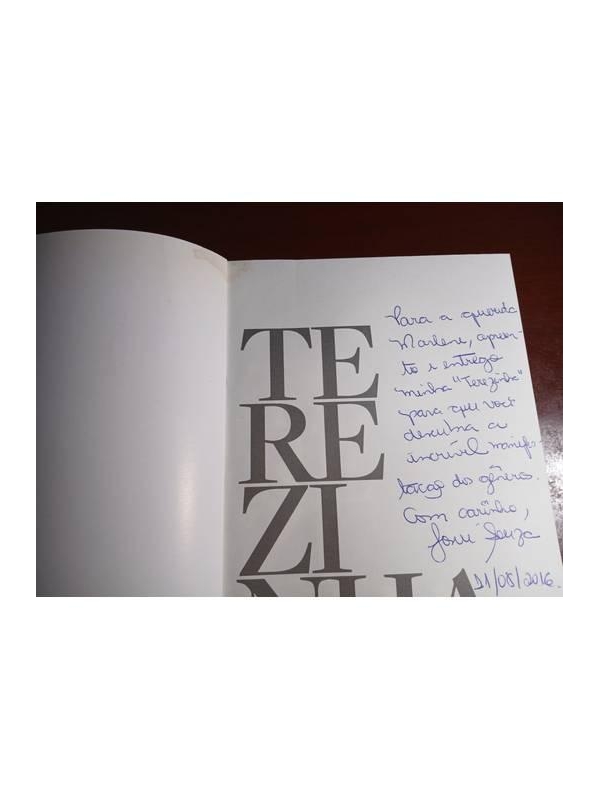 TE
RE
ZI
NHA
Para a querida
Marlene, apresen-
to e entrego
minha "Terezinha"
para que você
descubra a
incrível manifes-
tação dos gêneros.
Com carinho,
Josué Souza